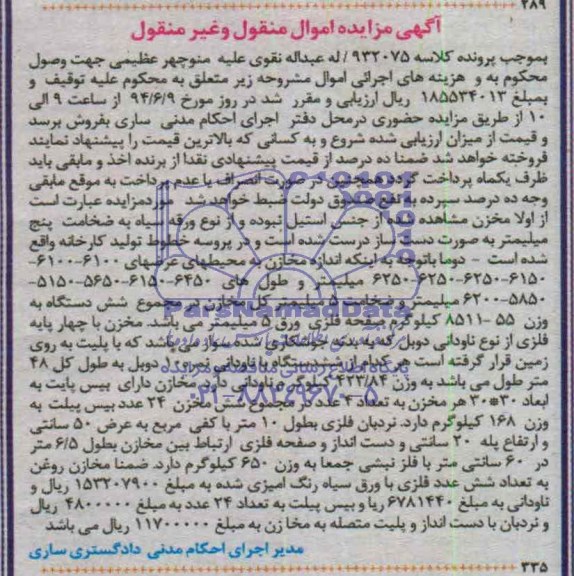 ۲۸۹
آگهی مزایده اموال منقول وغیر منقول
بموجب پرونده کلاسه ۹۳۲۰۷۵ / له عبداله نقوی علیه منوچهر عظیمی جهت وصول
محکوم به و هزینه های اجرائی اموال مشروحه زیر متعلق به محکوم علیه توقیف و
بمبلغ ۱۸۵۵۳۴۰۱۳ ریال ارزیابی و مقرر شد در روز مورخ ۹۴/۶/۹ از ساعت ۹ الی
۱۰ از طریق مزایده حضوری درمحل دفتر اجرای احکام مدنی ساری بفروش برسد
و قیمت از میزان ارزیابی شده شروع و به کسانی که بالاترین قیمت را پیشنهاد نمایند
فروخته خواهد شد ضمنا ده درصد از قیمت پیشنهادی نقدا از برنده اخذ و مابقی باید
ظرف یکماه پرداخت گردد همچنین در صورت انصراف یا عدم پرداخت به موقع مابقی
وجه ده درصد سپرده به نفع صندوق دولت ضبط خواهد شد موردمزایده عبارت است
از اولا مخزن مشاهده شده از جنس استیل نبوده و از نوع ورقه سیاه به ضخامت پنج
میلیمتر به صورت دست ساز درست شده است و در پروسه خطوط تولید کارخانه واقع
شده است - دوما باتوجه به اینکه اندازه مخازن به محیطهای عرضهای ۶۱۰۰-۶۱۰۰-
۶۱۵۰-۶۲۵۰-۶۲۵۰-۶۲۵۰ میلیمتر و طول های ۶۴۵۰-۶۱۵۰-۵۶۵۰-۵۱۵۰-
۵۸۵۰-۶۲۰۰ میلیمتر و ضخامت ۵ میلیمتر کل مخازن در مجموع شش دستگاه به
وزن ۵۵ -۸۵۱۱ کیلوگرم صفحه فلزی ورق ۵ میلیمتر می باشد. مخزن با چهار پایه
فلزی از نوع ناودانی دوبل که به بدنه جوشکاری شده سوار می باشد که با پلیت به روی
زمین قرار گرفته است هر کدام از شش دستگاه با ناودانی نمره ۱۰ دوبل به طول کل ۴۸
متر طول می باشد به وزن ۴۲۳/۸۴ کیلوگرم ناودانی دارد. مخازن دارای بیس پایت به
ابعاد ۳۰*۳۰ هر مخزن به تعداد ۴ عدد در مجموع شش مخزن ۲۴ عدد بیس پیلت به
وزن ۱۶۸ کیلوگرم دارد. نردبان فلزی بطول ۱۰ متر با کفی مربع به عرض ۵۰ سانتی
و ارتفاع پله ۲۰ سانتی و دست انداز و صفحه فلزی ارتباط بین مخازن بطول ۶/۵ متر
در ۶۰ سانتی متر با فلز نبشی جمعا به وزن ۶۵۰ کیلوگرم دارد. ضمنا مخازن روغن
به تعداد شش عدد فلزی با ورق سیاه رنگ امیزی شده به مبلغ ۱۵۳۲۰۷۹۰۰ ریال و
ناودانی به مبلغ ۶۷۸۱۴۴۰ ریا و بیس پیلت به تعداد ۲۴ عدد به مبلغ ۴۸۰۰۰۰۰ ریال
و نردبان با دست انداز و پلیت متصله به مخازن به مبلغ ۱۱۷۰۰۰۰۰ ریال می باشد
مدیر اجرای احکام مدنی دادگستری ساری
۳۳۵
ParsNamadData
پایگاه اطلاع رسانی مناقصه و مزایده
۰۲۱-۸۸۳۴۹۶۷۰-۵